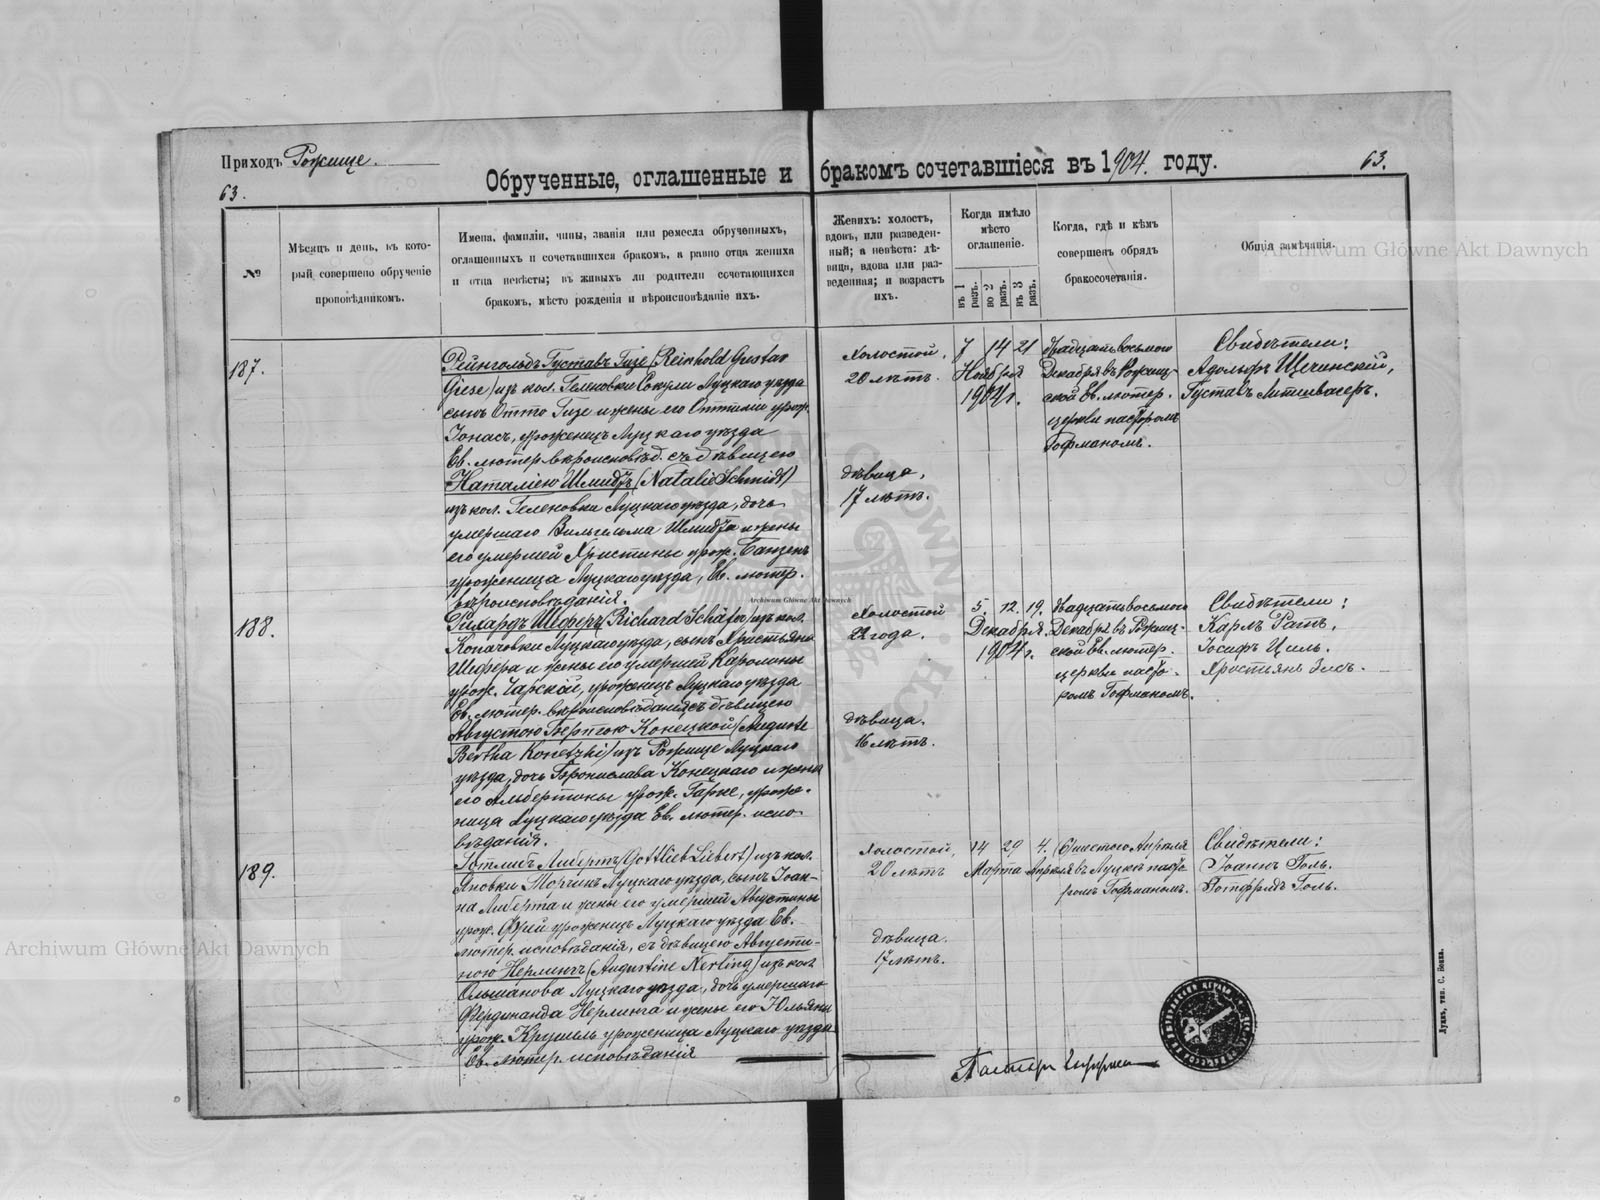 Приходъ Рожище.
63.
Обрученные, оглашенные и бракомъ сочетавшіеся въ 1904. году.
63.
№
Мѣсяцъ и день, въ кото-
рый совершено обрученіе
проповѣдникомъ.
Имена, фамиліи, чины, званія или ремесла обрученныхъ,
оглашенныхъ и сочетавшихся бракомъ, а равно отца жениха
и отца невѣсты; въ живыхъ ли родители сочетающихся
бракомъ, мѣсто рожденія и вѣроисповѣданіе ихъ.
Женихъ: холостъ,
вдовъ, или разведен-
ный; а невѣста: дѣ-
вица, вдова или раз-
веденная; и возрастъ
ихъ.
Когда имѣло
мѣсто
оглашеніе.
въ 1 разъ.
во 2 разъ.
въ 3 разъ.
Когда, гдѣ и кѣмъ
совершенъ обрядъ
бракосочетанія.
Общія замѣчанія.
187.
Рейнгольдъ Густавъ Гизе (Reinhold Gustav
Giese) изъ кол. Геленовки Луцкаго уѣзда
сынъ Отто Гизе и жены его Оттиліи урож.
Іонасъ, уроженецъ Луцкаго уѣзда
Ев. лютер. вѣроисповѣд. съ дѣвицею
Наталіею Шмидтъ (Natalie Schmidt)
изъ кол. Геленовки Луцкаго уѣзда, дочь
умершаго Вильгельма Шмидта и жены
его умершей Христины урож. Банзенъ
уроженица Луцкаго уѣзда, Ев. лютер.
вѣроисповѣданія.
Холостой,
20 лѣтъ.
дѣвица,
17 лѣтъ.
7 14 21
Ноября
1904 г.
двадцать восьмого
Декабря въ Рожищ-
ской Ев. лютер.
церкви пасторомъ
Гофманомъ.
Свидѣтели:
Адольфъ Щечинскій,
Густавъ Литтвасеръ.
188.
Рихардъ Шеферъ (Richard Schäfer) изъ кол.
Копачовки Луцкаго уѣзда, сынъ Христьяна
Шефера и жены его умершей Каролины
урож. Чарской, уроженецъ Луцкаго уѣзда
Ев. лютер. вѣроисповѣданія съ дѣвицею
Августою Бертою Конецкой (Auguste
Bertha Konetzki) изъ Рожище Луцкаго
уѣзда, дочь Бронислава Конецкаго и жены
его Альбертины урож. Гарке, уроже-
ница Луцкаго уѣзда Ев. лютер. испо-
вѣданія.
Холостой
22 года.
дѣвица.
16 лѣтъ.
5. 12. 19.
Декабря.
1904 г.
двадцать восьмого
Декабря въ Рожищ-
ской Ев. лютер.
церкви пасто-
ромъ Гофманомъ.
Свидѣтели:
Карлъ Ратъ,
Іосифъ Циль.
Христьянъ Зисъ.
189.
Готлибъ Либертъ (Gottlieb Liebert) изъ кол.
Яновки Торчинъ Луцкаго уѣзда, сынъ Іоан-
на Либерта и жены его умершей Августины
урож. Фрей уроженецъ Луцкаго уѣзда Ев.
лютер. исповѣданія, съ дѣвицею Августи-
ною Нерлингъ (Augustine Nerling) изъ кол.
Ольшанова Луцкаго уѣзда, дочь умершаго
Фердинанда Нерлинга и жены его Юльяны
урож. Крушель уроженица Луцкаго уѣзда
Ев. лютер. исповѣданія
Холостой,
20 лѣтъ
дѣвица.
17 лѣтъ.
14 29 4.
Марта Апрѣля
6/шестого Апрѣля
въ Луцкѣ пасто-
ромъ Гофманомъ.
Свидѣтели:
Іоаннъ Голь.
Готфридъ Голь.
Пасторъ Гофманъ
Луцкъ, тип. С. Бокка.
Archiwum Główne Akt Dawnych
Archiwum Główne Akt Dawnych
Archiwum Główne Akt Dawnych